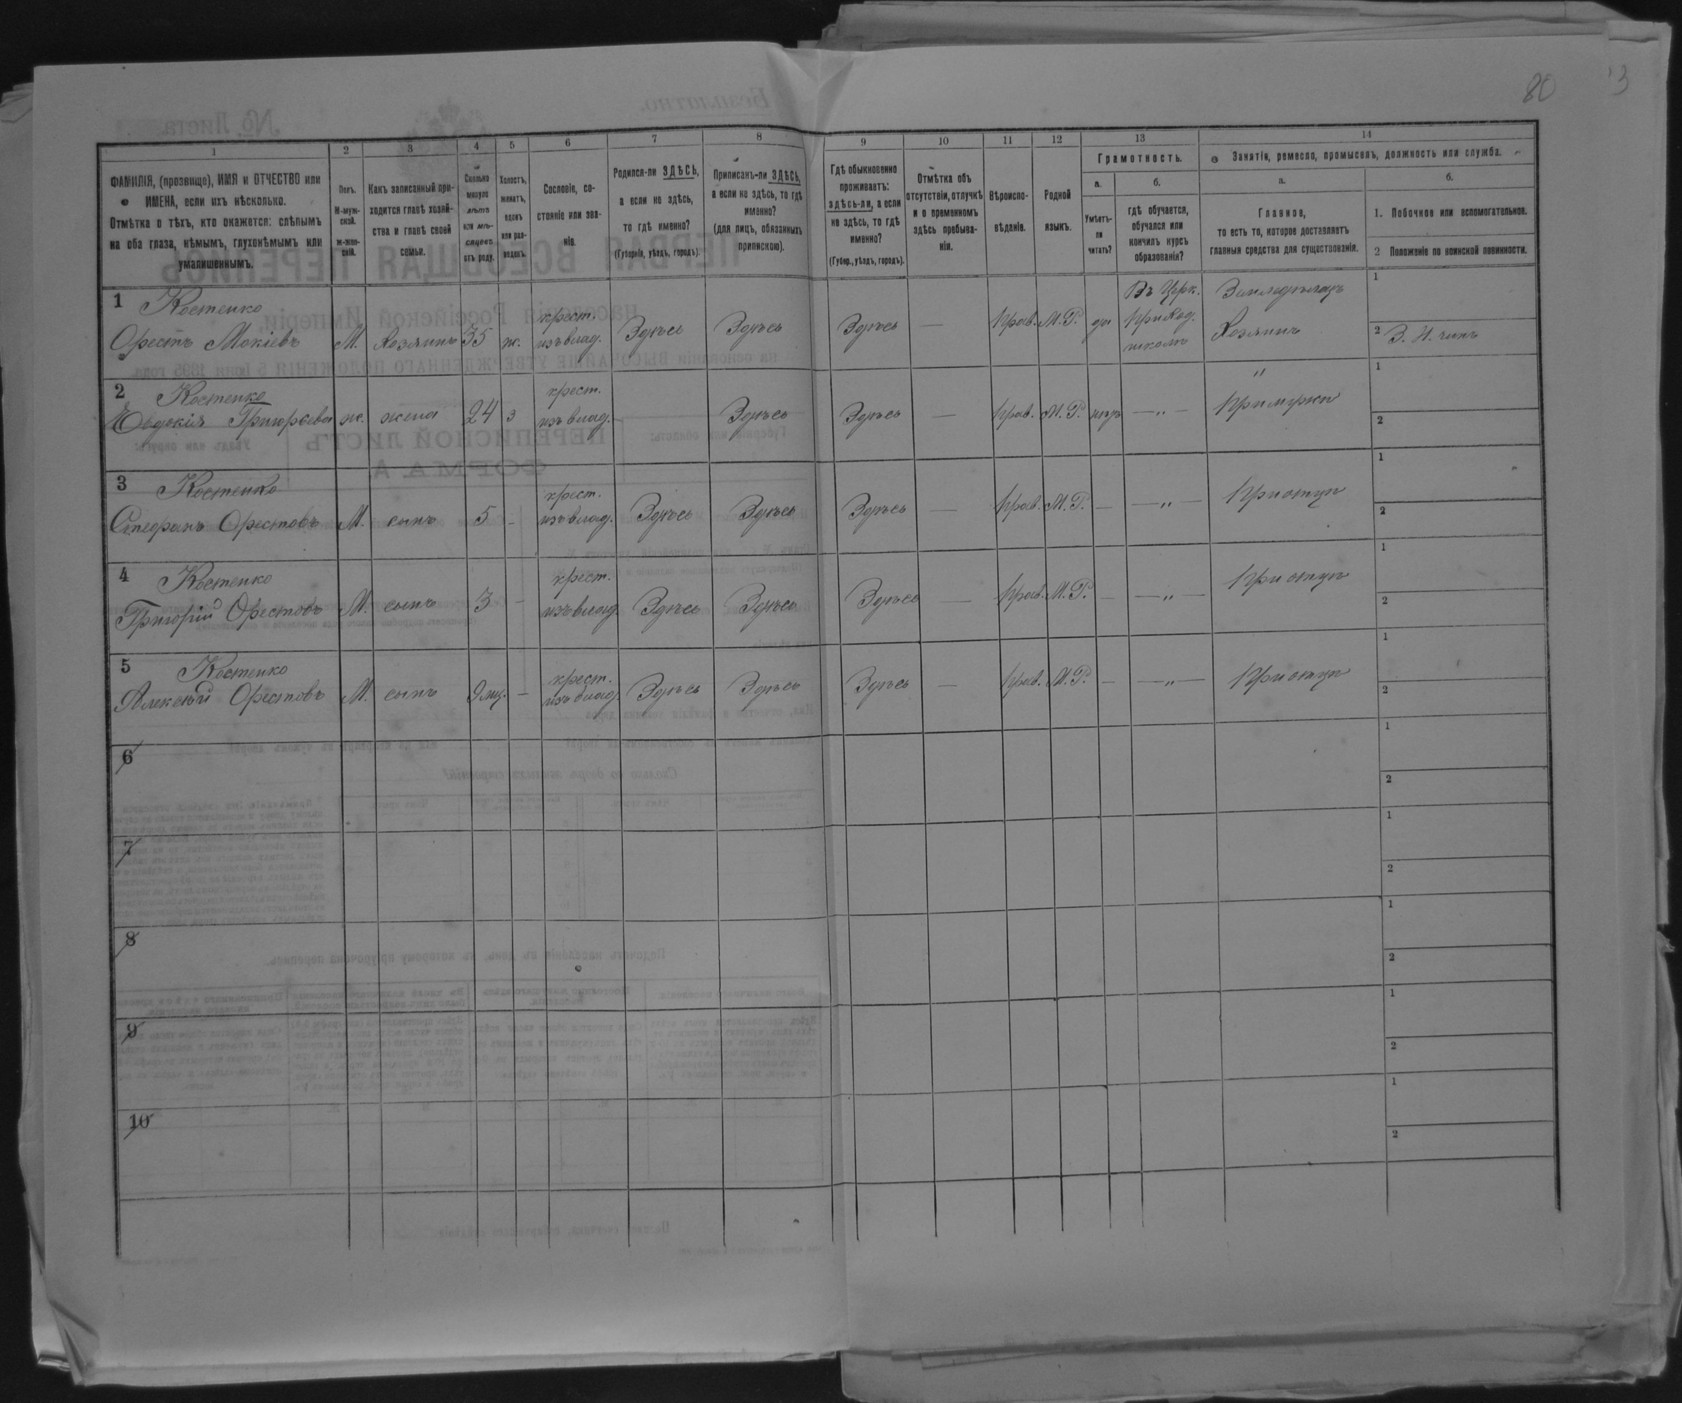 80
13
1 2 3 4 5 6 7 8 9 10 11 12 13 14
ФАМИЛІЯ, (прозвище), ИМЯ и ОТЧЕСТВО или
ИМЕНА, если ихъ нѣсколько.
Отмѣтка о тѣхъ, кто окажется: слѣпымъ
на оба глаза, нѣмымъ, глухонѣмымъ или
умалишеннымъ.
Полъ.
М-муж-
ской.
Ж-жен-
скій.
Какъ записанный при-
ходится главѣ хозяй-
ства и главѣ своей
семьи.
Сколько
минуло
лѣтъ
или мѣ-
сяцевъ
отъ роду.
Холостъ,
женатъ,
вдовъ
или раз-
веденъ.
Сословіе, со-
стояніе или зва-
ніе.
Родился-ли ЗДѢСЬ,
а если не здѣсь,
то гдѣ именно?
(Губернія, уѣздъ, городъ).
Приписанъ-ли ЗДѢСЬ,
а если не здѣсь, то гдѣ
именно?
(для лицъ, обязанныхъ
припискою).
Гдѣ обыкновенно
проживаетъ:
здѣсь-ли, а если
не здѣсь, то гдѣ
именно?
(Губер., уѣздъ, городъ).
Отмѣтка объ
отсутствіи, отлучкѣ
и о временномъ
здѣсь пребыва-
ніи.
Вѣроиспо-
вѣданіе.
Родной
языкъ.
Грамотность.
а.
Умѣетъ-
ли
читать?
б.
гдѣ обучается,
обучался или
кончилъ курсъ
образованія?
Занятіе, ремесло, промыселъ, должность или служба.
а.
Главное,
то есть то, которое доставляетъ
главныя средства для существованія.
б.
1. Побочное или вспомогательное.
2 Положеніе по воинской повинности.
1 Костенко
Орестъ Мокіевъ М. Хозяинъ 35 ж. крест. изъ влад. Здѣсь Здѣсь Здѣсь — Прав. М.Р. да Въ Церк. Приход. школѣ Земледѣлецъ Хозяинъ 1
2
2 Костенко
Евдокія Григорьева ж. жена 24 з крест. изъ влад. Здѣсь Здѣсь — Прав. М.Р. нѣтъ — „ — „ 1
2
3 Костенко
Стефанъ Орестовъ М. сынъ 5 - крест. изъ влад. Здѣсь Здѣсь Здѣсь — Прав. М.Р. — — „ — При отцѣ 1
2
4 Костенко
Григорій Орестовъ М. сынъ 3 - крест. изъ влад. Здѣсь Здѣсь Здѣсь — Прав. М.Р. — — „ — При отцѣ 1
2
5 Костенко
Алексѣй Орестовъ М. сынъ 9 мц. - крест. изъ влад. Здѣсь Здѣсь Здѣсь — Прав. М.Р. — — „ — При отцѣ 1
2
6 1
2
7 1
2
8 1
2
9 1
2
10 1
2